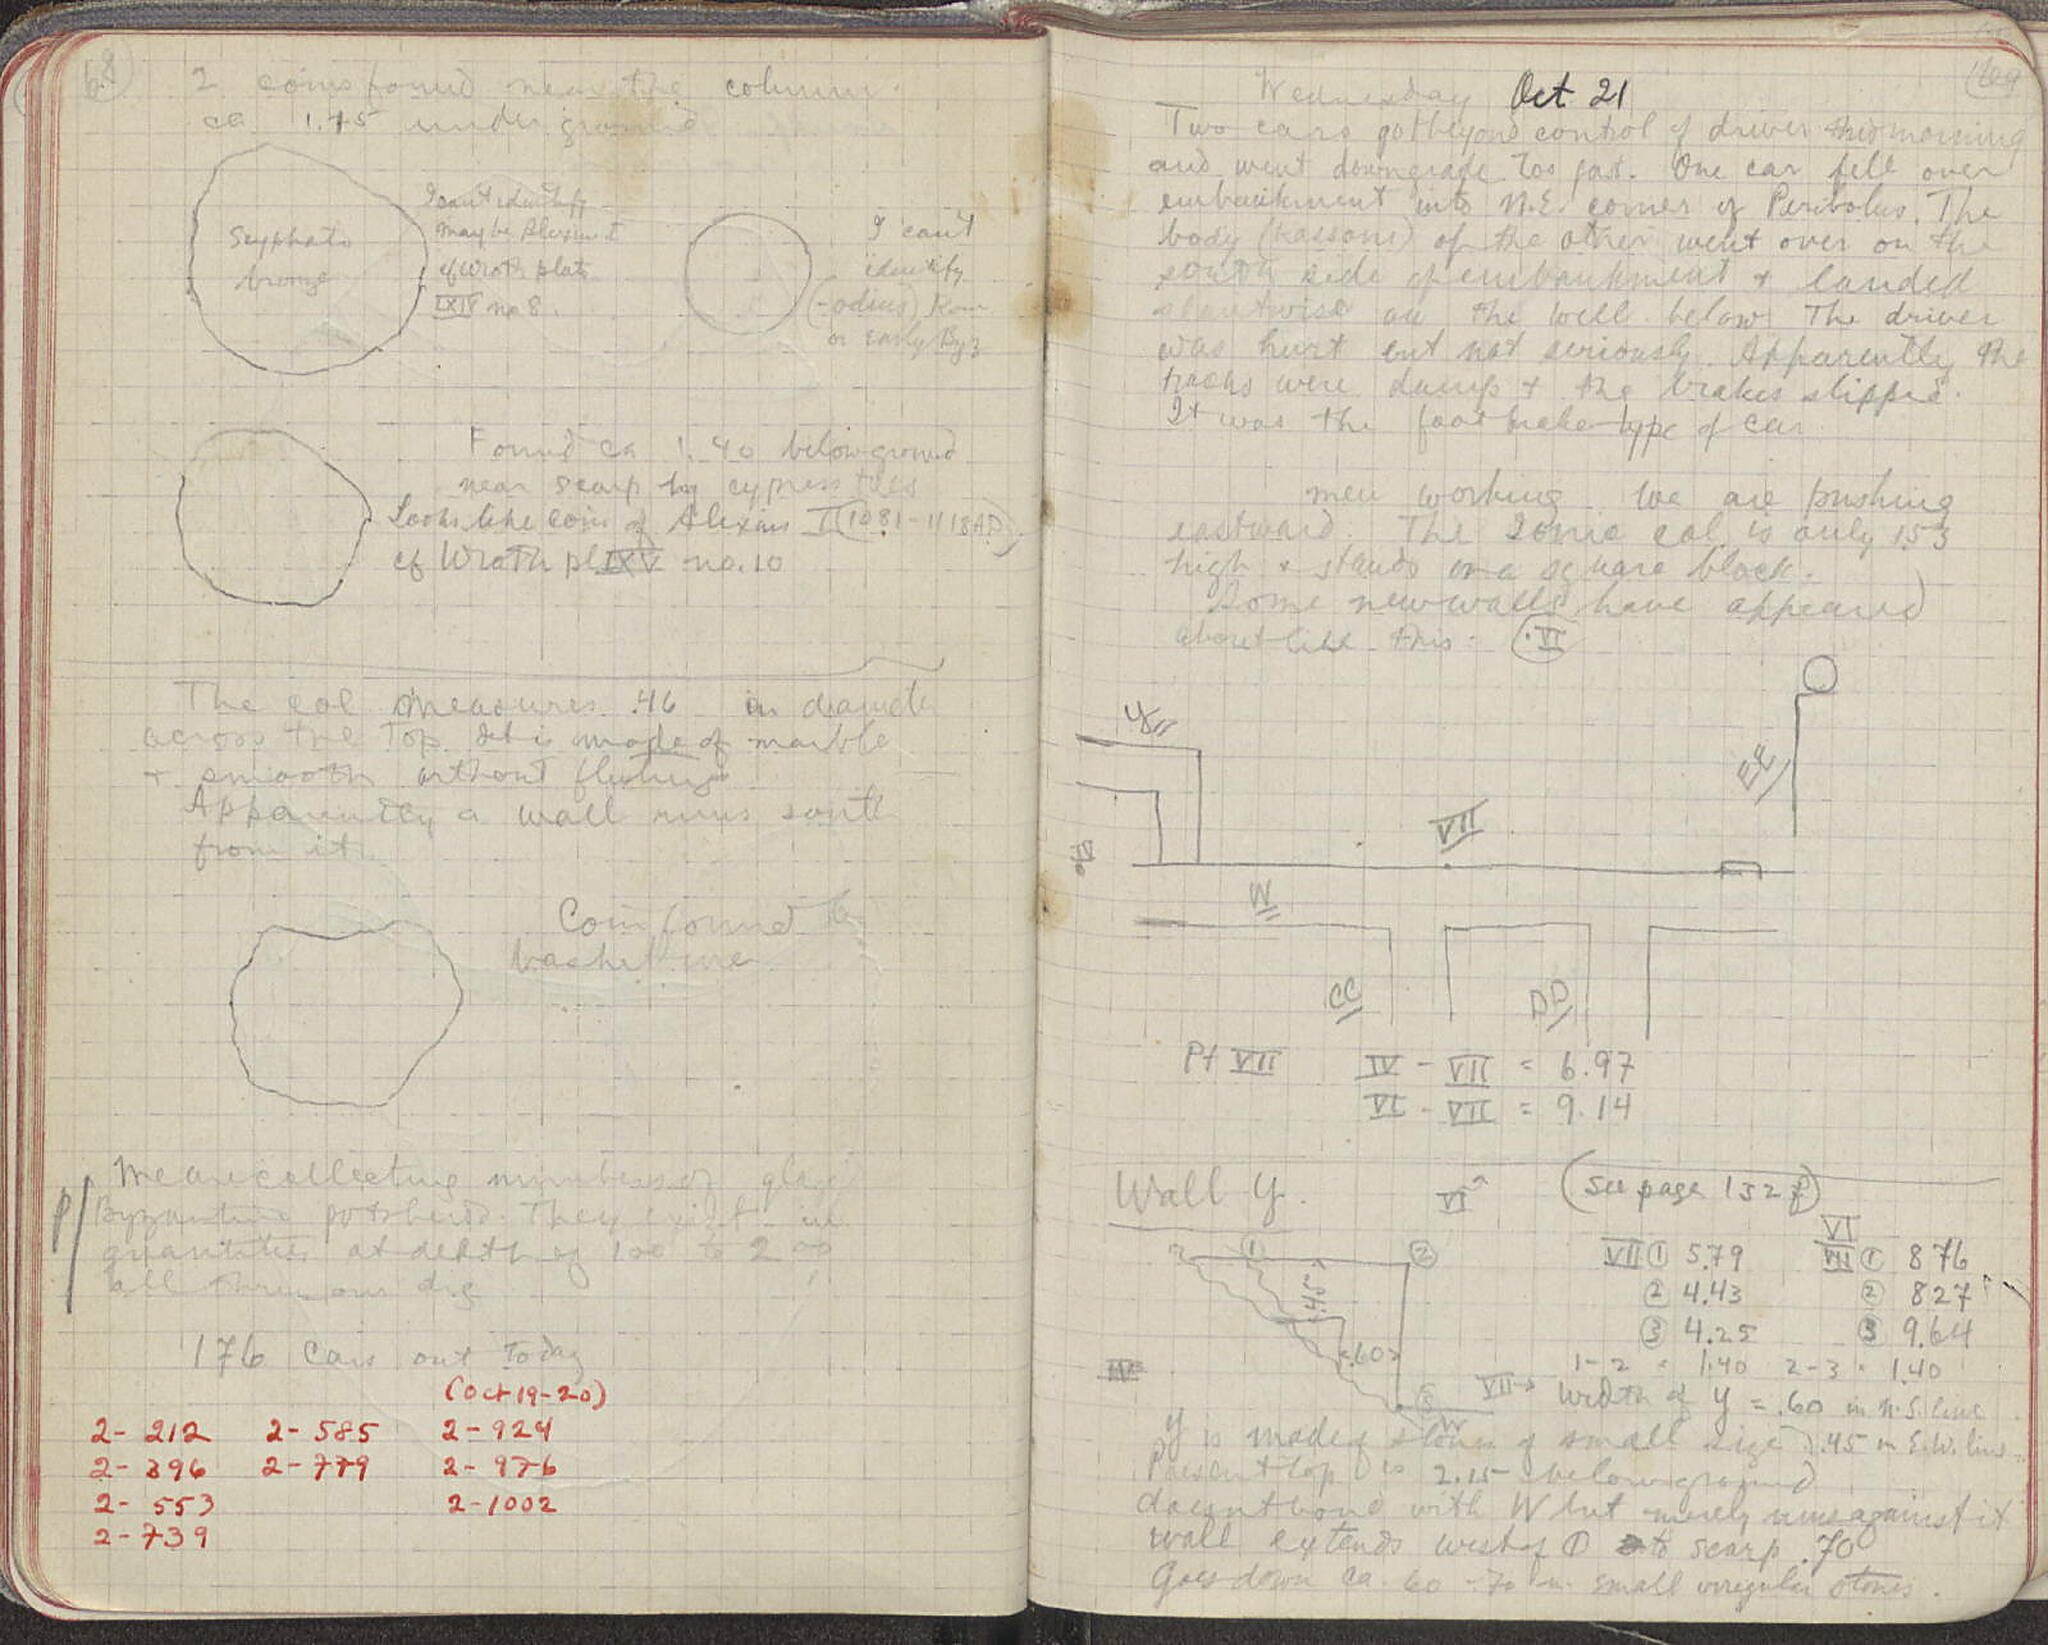 68
2 coins found near the column
ca 1.45 under ground
Scyphate
bronze
I can't identify
may be Alexius I
cf Wroth plate
LXIV no 8.
I can't
identify
(-odius) Rom
or early Byz
Found ca 1.40 below ground
near scarp by cypress trees
Looks like coin of Alexius I (1081-1118 AD)
cf Wroth pl LXV no. 10
The col measures .46 in diameter
across the top. It is made of marble
+ smooth without fluting
Apparently a wall runs south
from it.
Coin found by
basket
P/
We are collecting numbers of glazed
Byzantine potsherds. They exist in
quantities at depth of 1.00 to 2.00
all thru our dig
176 cars out today
(Oct 19-20)
2- 212 2- 585 2- 924
2- 396 2- 779 2- 976
2- 553 2-1002
2- 739
69
Wednesday Oct 21
Two cars got beyond control of driver this morning
and went downgrade too fast. One car fell over
embankment into N.E. corner of Peribolus. The
body (kassoni) of the other went over on the
south side of embankment + landed
on the well below. The driver
was hurt but not seriously. Apparently the
tracks were damp + the brakes slipped.
It was the foot brake type of car.
men working. We are pushing
eastward. The Ionic col. is only 1.53
high + stands on a square block.
Some new walls have appeared
about like this: • VI
Y
EE
VII
IV
W
CC
DD
Pt VII IV - VII = 6.97
VI - VII = 9.14
Wall Y. VI^ (See page 132 f)
1 2
.45
.60
3
W
IV
VII→
VII 1 5.79
2 4.43
3 4.25
VI
VII 1 876
2 827
3 9.64
1-2 = 1.40 2-3 = 1.40
Width of Y = .60 in N.S. line
Y is made of stones of small size .45 in E.W. line
Present top is 2.15 below ground
doesn't bond with W but merely runs against it
wall extends west of 1 to scarp .70
Goes down ca. 60 - 70 small irregular stones.